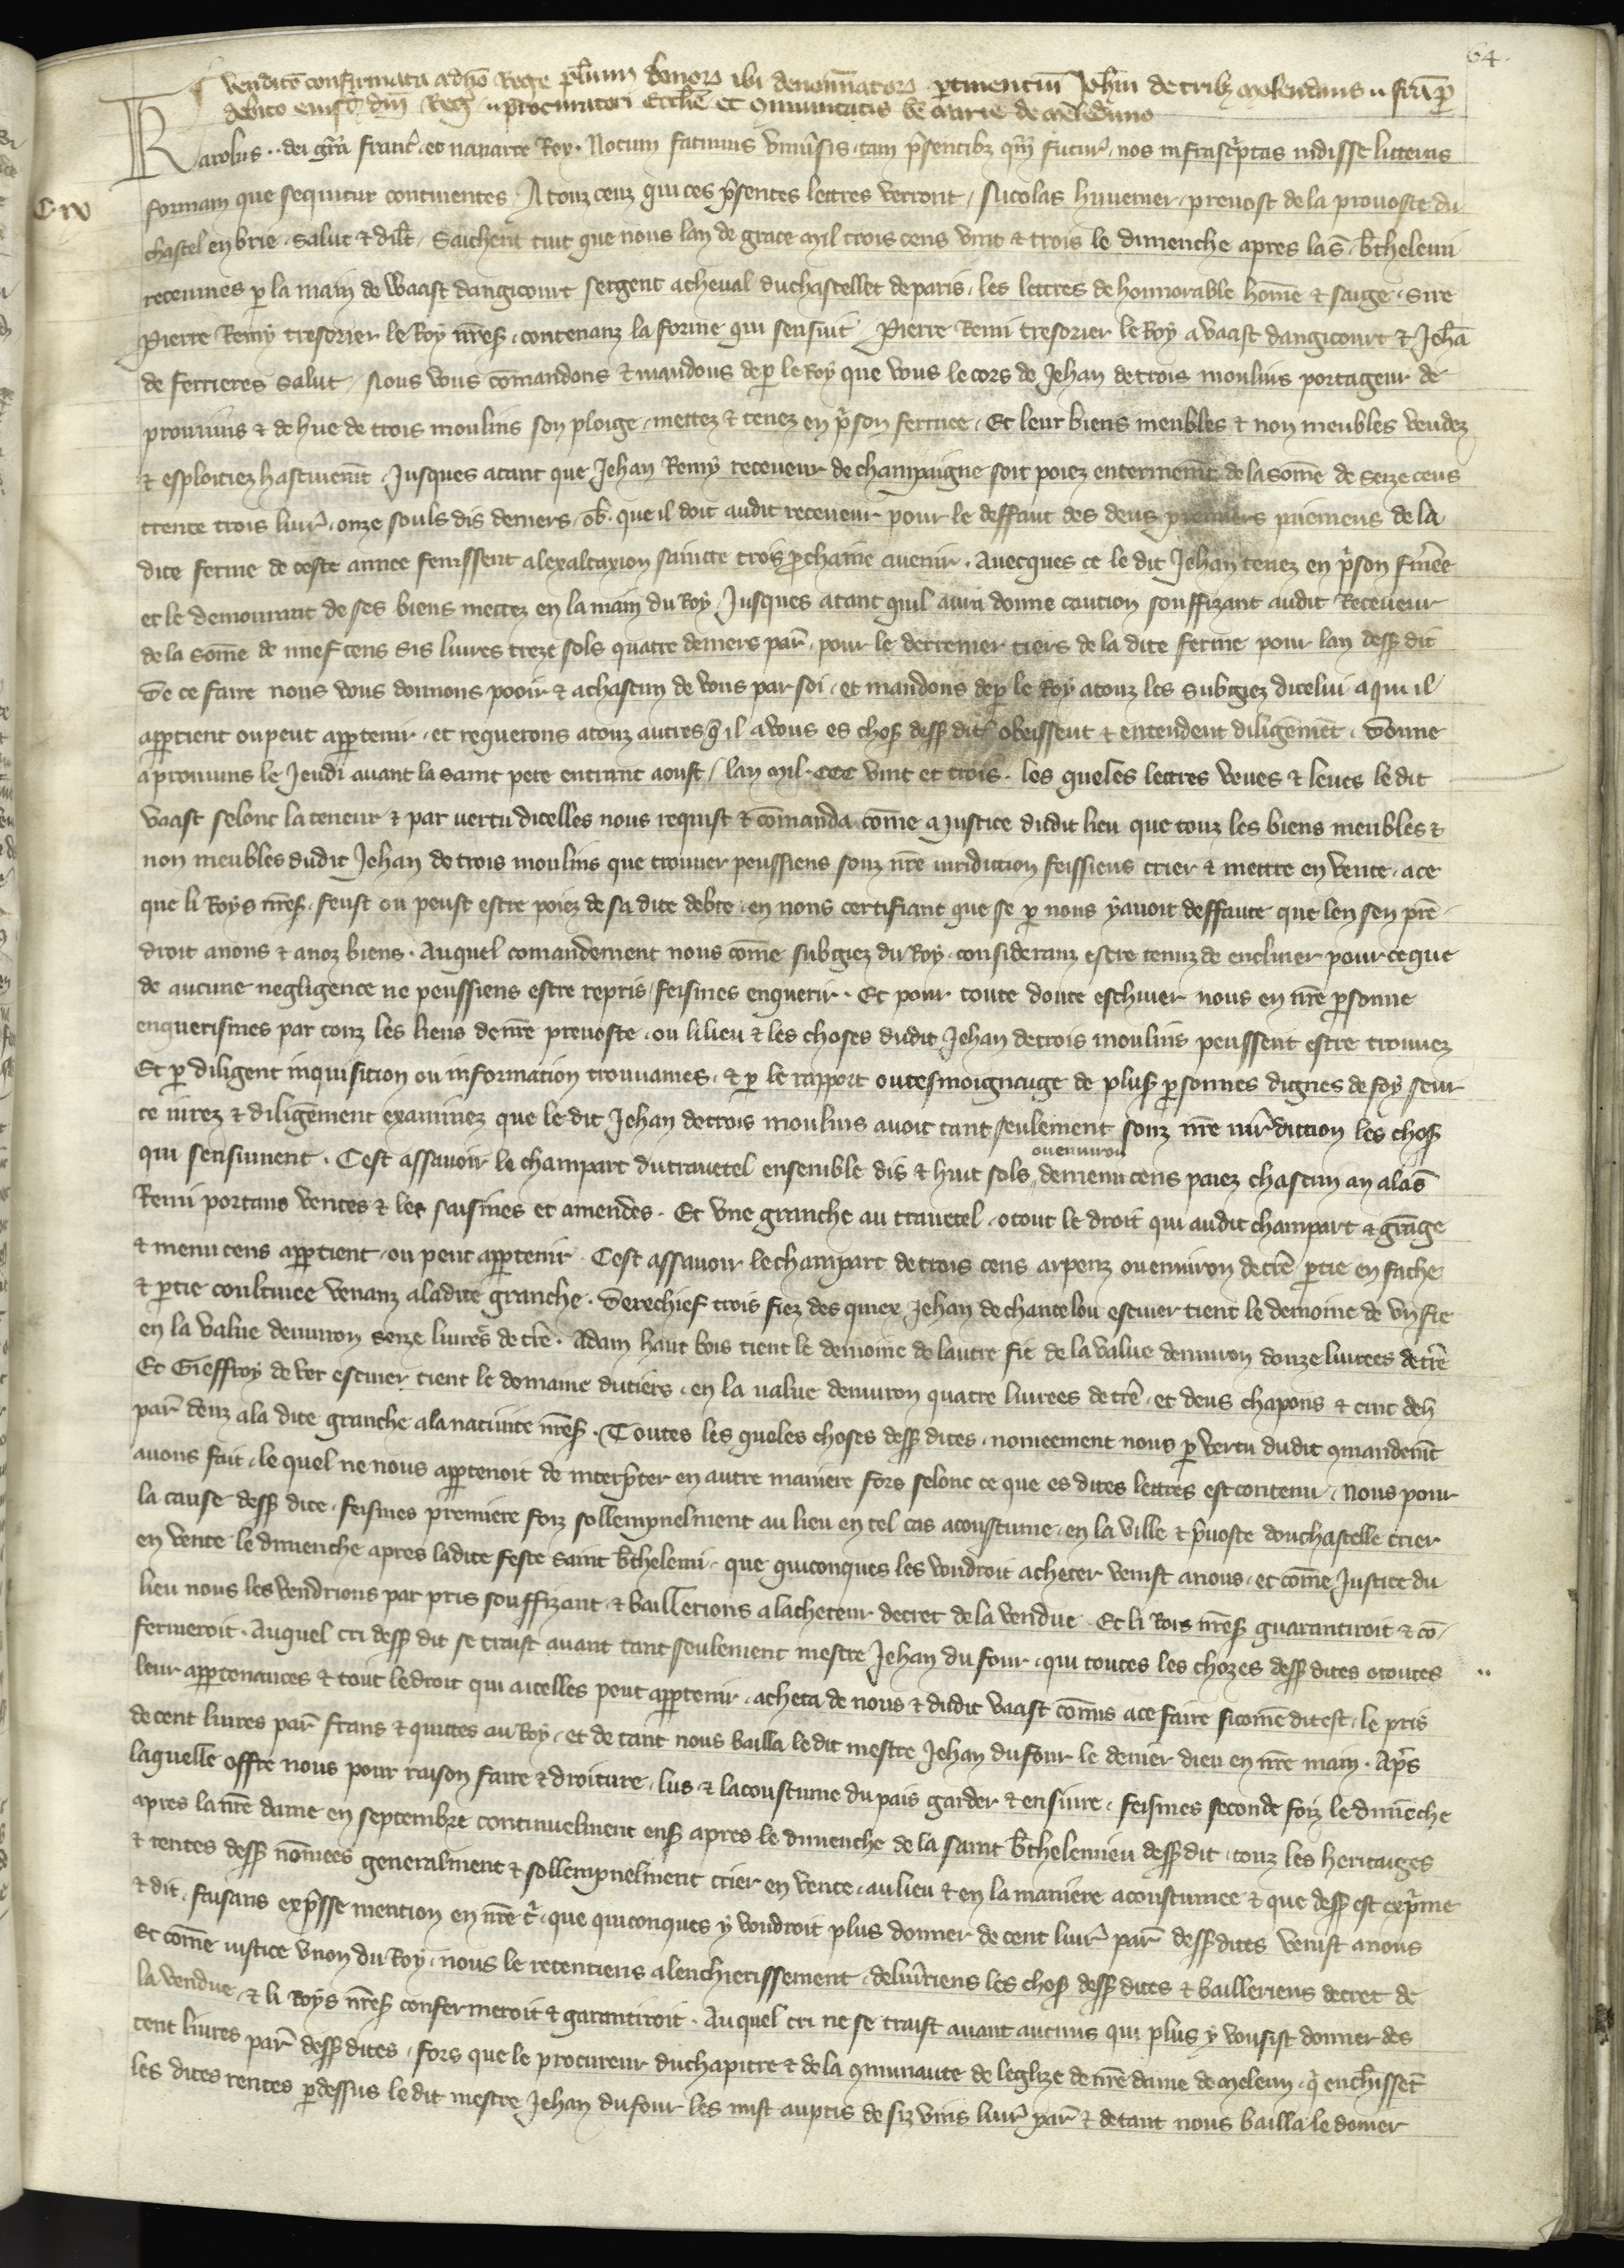 64.
Venditō confirmata a dño Rege plurium bonorꝝ ibi denominatorꝝ ꝑtinenciū Joh̃ni de tribꝫ molendinis .. fca ꝓ
debito eiusdē dñi Reḡ .. procuratori Eccl̃ie et ꝯmunitatis bē Marie de Meleduno
Karolus .. dei gr̃a franc̃ et nauarre Rex. Notum facimus vniu̾sis tam p̃sentibꝫ qm̃ futur̃ . nos infrasc̾ptas uidisse litteras
C.ix
formam que sequitur continentes. A touz ceuz qui ces p̃sentes lettres verront / Nicolas huuenier . preuost de la prouoste du
chastel en brie . salut & dilt̃ / Saichent tuit que nous lan de grace Mil trois cens vint & trois le dimenche apres la s̃ . b̃thelemi
receumes ꝑ la main de Waast dangicourt sergent a cheual du chastellet de paris . les lettres de honnorable home & saige . Sire
Pierre Remy tresorier le Roy nr̃eſ . contenanz la forme qui sensuit / Pierre Remi tresorier le Roy a vaast dangicourt & Jeh̃a
de ferrieres salut / Nous vous cōmandons & mandons de ꝑ le Roy que vous le cors de Jehan de trois moulins portageur de
prouuins & de hue de trois moulins son ploige . mettez & tenez en p̃son fermee . Et leur biens meubles & non meubles vendez
& esploitiez hastiuem̃t . Jusques atant que Jehan Remy receueur de champaigne soit poiez enterinem̃t de la some de seize cens
trente trois liur̃ . onze souls dis deniers . ob̃ . que il doit audit receueur pour le deffaut des deus premiers paiemens de la
dite ferme de ceste annee fenissent a lexaltaxion saincte crois ꝓchaine auenir . Auecques ce le dit Jehan tenez en p̃son fm̃ee
et le demourant de ses biens mettez en la main du Roy . Jusques atant quil aura donne caution souffizant audit Receueur
de la some de nuef cens sis liures treze sols quatre deniers par̃ . pour le derrenier tiers de la dite ferme pour lan desſ dit
De ce faire nous vous donnons pooir & a chascun de vous par soi . et mandons de ꝑ le Roy a touz les subgiez dicelui a qui il
apꝑtient ou peut apꝑtenir . et requerons a touz autres q̃ il a vous es choſ desſ dit̃ obeissent & entendent diligem̃et . Donne
a prouuins le Jeudi auant la saint pere entrant aoust / lan Mil . CCC vint et trois . les queles lettres veues & leues le dit
vaast selonc la teneur & par uertu dicelles nous requist & cōmanda cōme a Justice dudit lieu que touz les biens meubles &
non meubles dudit Jehan de trois moulins que trouuer peussiens souz nr̃e iuridicion feissiens crier & mettre en vente . a ce
que li Roys nr̃eſ . feust ou peust estre poiez de sa dite debte . en nous certifiant que se ꝑ nous y auoit deffaute que len sen prē
droit a nous & a noz biens . Auquel comandement nous cōme subgiez du Roy . consideranz estre tenuz de encliner pour ce que
de aucune negligence ne peussiens estre repris / feismes enquerir . Et pour toute doute eschiuer nous en nr̃e ꝑsonne
enquerismes par touz les liens de nr̃e preuoste . ou li lieu & les choses dudit Jehan de trois moulins peussent estre trouuez
Et ꝑ diligent inquisition ou information trouuames . & ꝑ le rapport ou tesmoignaige de pluſ ꝑsonnes dignes de foy seur
ce iurez & diligēment examinez que le dit Jehan de trois moulins auoit tant seulement souz nr̃e iur̃diction les choſ
qui sensiuuent . Cest assauoir le champart du trauetel ensemble dis & huit sols ou enuiron de menu cens paiez chascun an a la s̃
Remi portans ventes & les saisines et amendes . Et vne granche au trauetel . o tout le droit qui audit champart & grāge
& menu cens apꝑtient . ou peut apꝑtenir . Cest assauoir le champart de trois cens arpenz ou enuiron de tr̃e ꝑtie en fache
& ꝑtie coultiuee venanz a la dite granche . Derechief trois fiez des quiex Jehan de chantelou escuier tient le demoine de vn fie
en la value denuiron seize liurees de tr̃e . Adam haut bois tient le demoine de lautre fie de la value denuiron douze liurees de tr̃e
Et Gieffroy de ver escuier tient le domaine du tiers . en la ualue denuiron quatre liurees de tr̃e . et deus chapons & cinc deñ
par̃ deuz a la dite granche a la natiuite nr̃eſ . Toutes les queles choses desſ dites . nomeement nous ꝑ vertu dudit ꝯmandem̃t
auons fait . le quel ne nous apꝑtenoit de interp̃ter en autre maniere fors selonc ce que es dites lettres est contenu . Nous pour
la cause desſ dite . feismes premiere foiz sollempnelment au lieu en tel cas acoustume . en la ville & p̃uoste dou chastelle crier
en vente le dimenche apres la dite feste saint b̃thelemi . que quiconques les voudroit acheter venist a nous . et cōme Justice du
lieu nous les vendrions par pris souffizant & baillerions a lacheteur decret de la vendue . Et li Rois nr̃eſ guarantiroit & cō
fermeroit . Auquel cri desſ dit se traist auant tant seulement mestre Jehan du four . qui toutes les chozes desſ dites o toutes
leur apꝑtenances & tout le droit qui a icelles peut apꝑtenir . acheta de nous & dudit vaast cōmis a ce faire si cōme dit est . le pris
de cent liures par̃ frans & quittes au Roy . et de tant nous bailla le dit mestre Jehan du four le denier dieu en nr̃e main . Ap̃s
laquelle offre nous pour raison faire & droiture . lus & la coustume du pais garder & ensuire . feismes seconde foiz le dimēche
apres la nr̃e dame en septembre continuelment enſ apres le dimenche de la saint b̃thelemieu desſ dit . touz les heritaiges
& rentes desſ nōmees generalment & sollempnelment crier en vente . au lieu & en la maniere acoustumee & que desſ est exp̃me
& dit . faisans exp̃sse mention en nr̃e c̃ . que quiconques y voudroit plus donner de cent liur̃ par̃ desſ dites venist a nous
Et cōme iustice v non du Roy . nous le recentiens a lenchierissement . deliu̾riens les choſ desſ dites & bailleriens decret de
la vendue . & li Roys nr̃eſ confermeroit & garantiroit . Au quel cri ne se traist auant aucuns qui plus y vousist donner des
cent liures par̃ desſ dites . fors que le procureur du chapitre & de la ꝯmunaute de leglize de nr̃e dame de Meleun . q̾ enchĩsset̃
les dites rentes ꝑ dessus le dit mestre Jehan du four les mist au pris de siz vins liur̃ par̃ & de tant nous bailla le denier